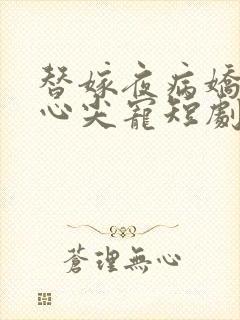 替嫁夜病嬌
心尖寵短劇
蒼理無心